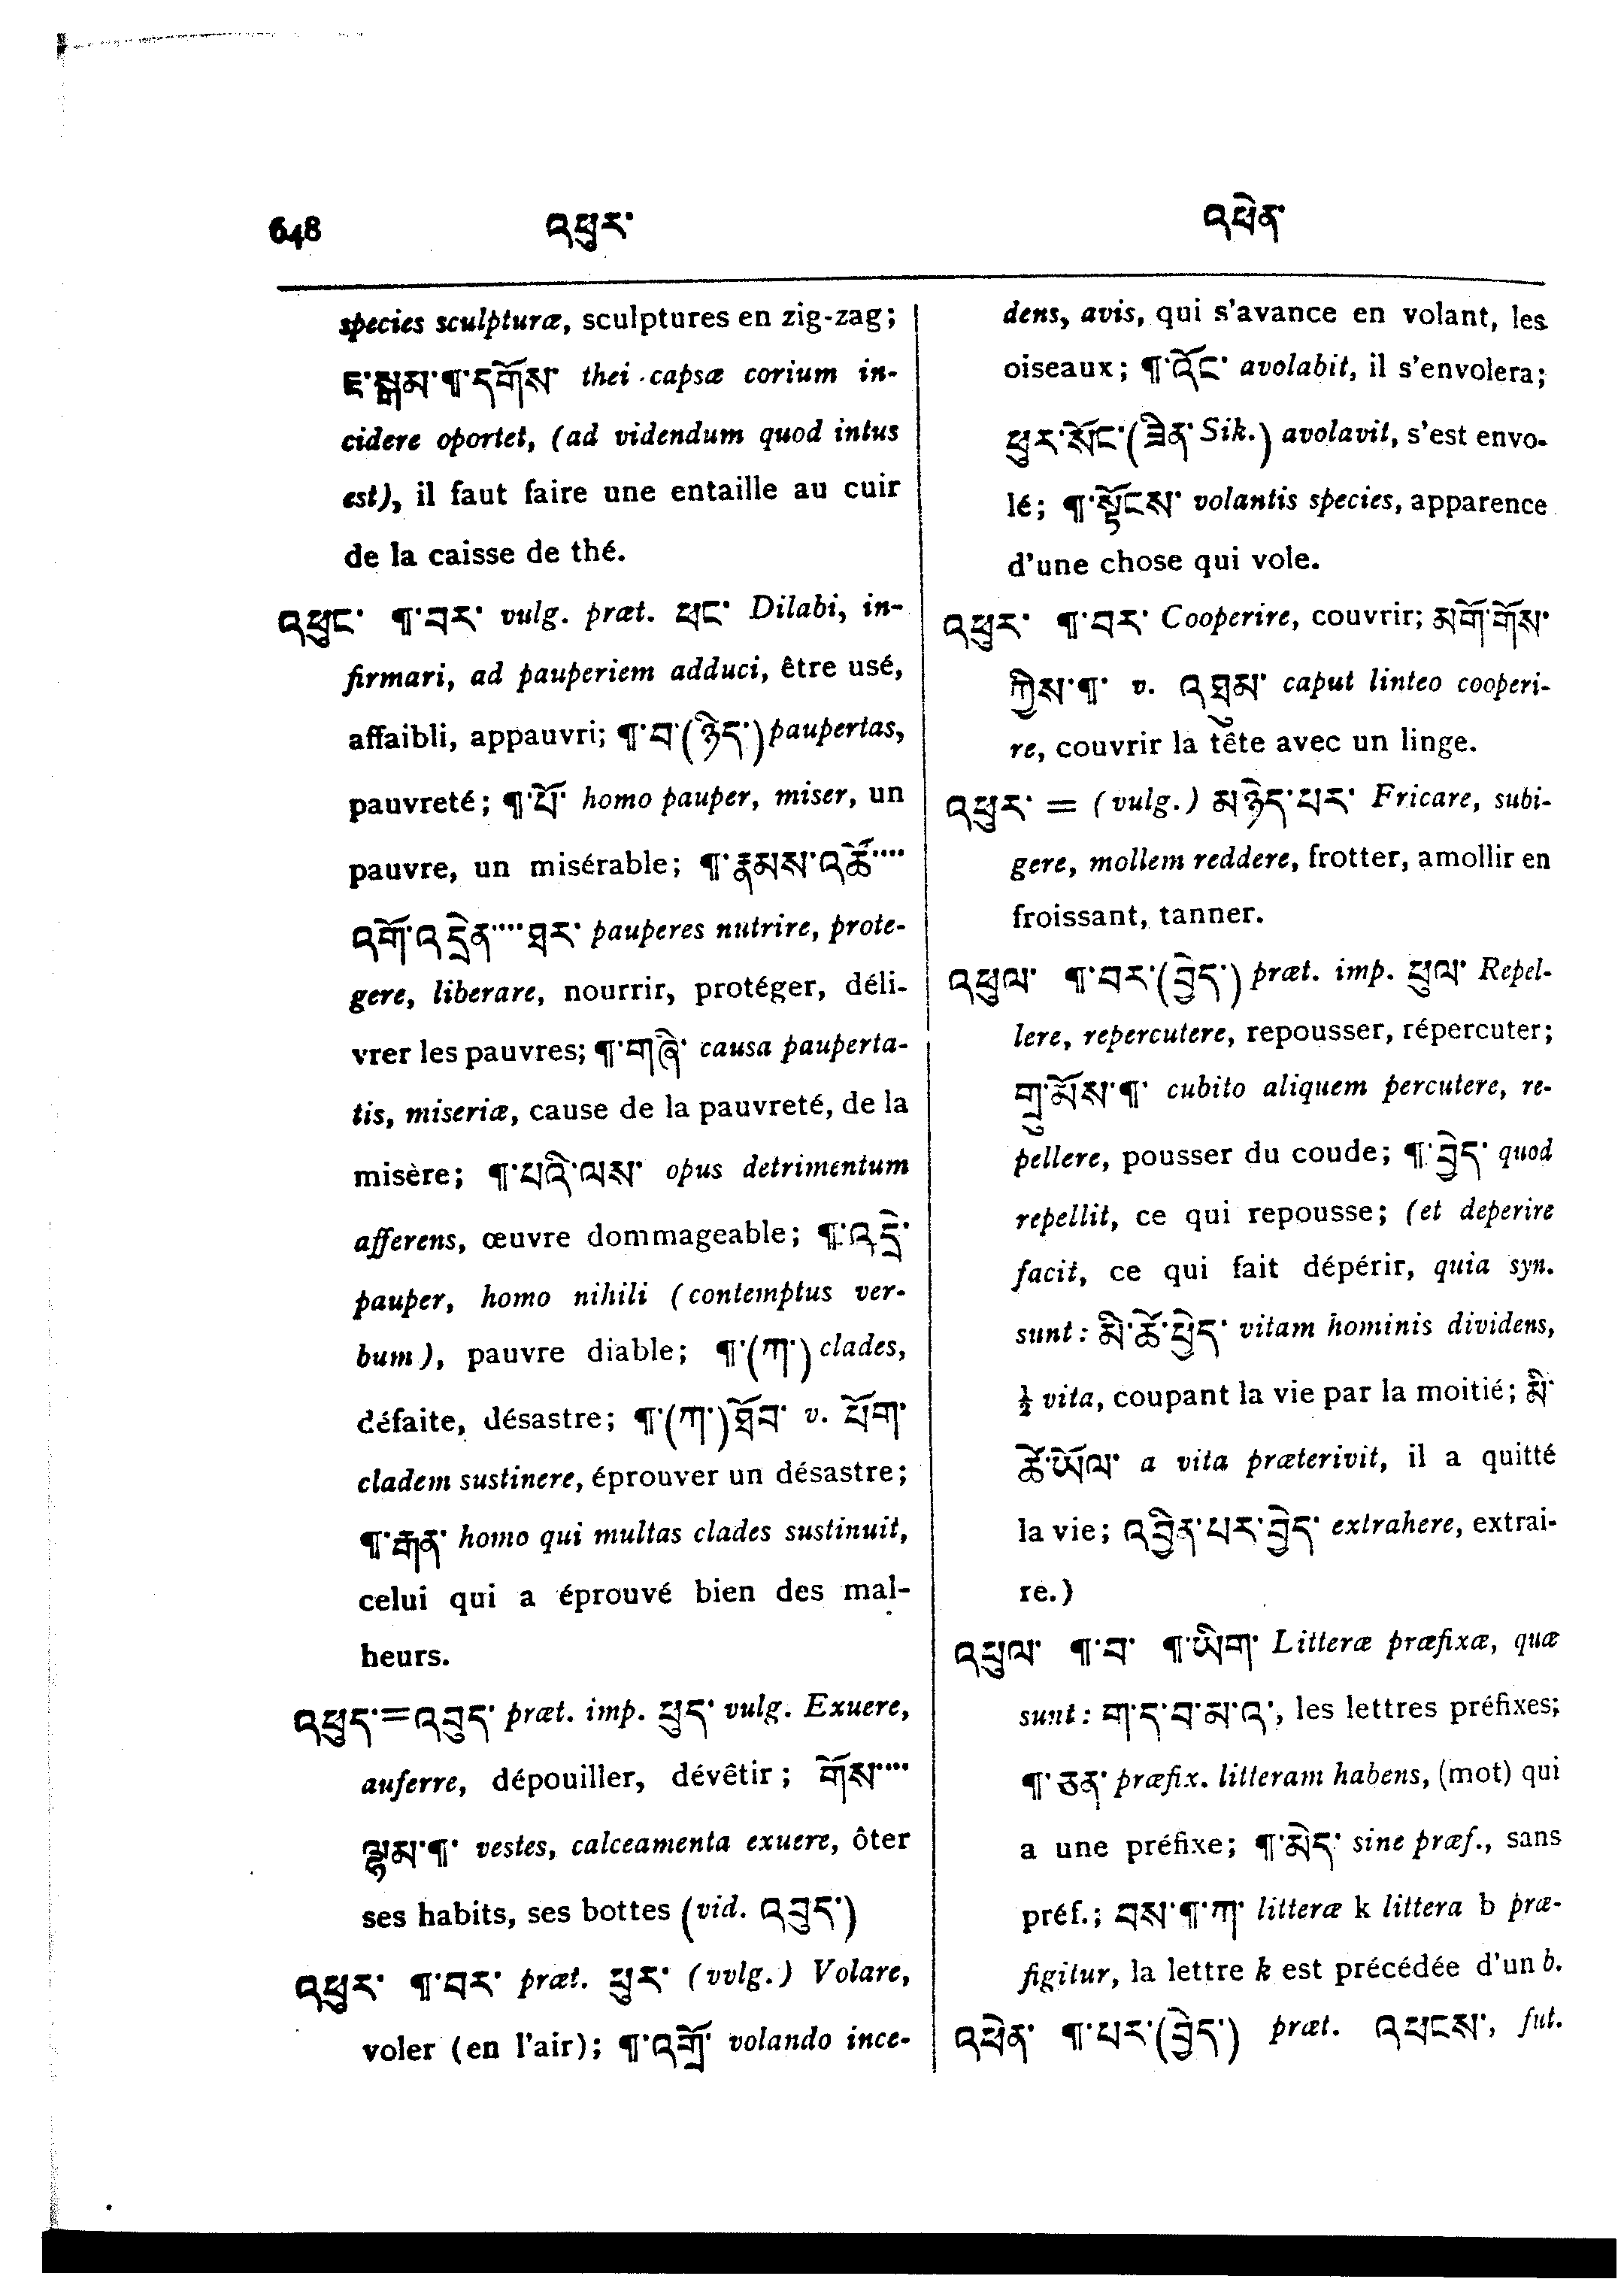 648 འཕུར་ འཕེན་
species sculpturæ, sculptures en zig-zag;
ཇ་སྒམ་¶་དགོས་ thei capsæ corium in-
cidere oportet, (ad videndum quod intus
est), il faut faire une entaille au cuir
de la caisse de thé.
འཕུང་ ¶་བར་ vulg. præt. ཕང་ Dilabi, in-
firmari, ad pauperiem adduci, être usé,
affaibli, appauvri; ¶་བ་(ཉེད་) paupertas,
pauvreté; ¶་པོ་ homo pauper, miser, un
pauvre, un misérable; ¶་རྣམས་འཚོ་····
འགོ་འདྲེན་····ཐར་ pauperes nutrire, prote-
gere, liberare, nourrir, protéger, déli-
vrer les pauvres; ¶་གཞི་ causa pauperta-
tis, miseriæ, cause de la pauvreté, de la
misère; ¶་པའི་ལས་ opus detrimentum
afferens, œuvre dommageable; ¶་འདྲེ་
pauper, homo nihili (contemptus ver-
bum), pauvre diable; ¶་(ཀ་) clades,
défaite, désastre; ¶་(ཀ་)ཐོབ་ v. ཕོག་
cladem sustinere, éprouver un désastre;
¶་རྒན་ homo qui multas clades sustinuit,
celui qui a éprouvé bien des mal-
heurs.
འཕུད་=འབུད་ præt. imp. ཕུད་ vulg. Exuere,
auferre, dépouiller, dévêtir; གོས་····
ལྷམ་¶་ vestes, calceamenta exuere, ôter
ses habits, ses bottes (vid. འབུད་)
འཕུར་ ¶་བར་ præt. ཕུར་ (vvlg.) Volare,
voler (en l'air); ¶་འགྲོ་ volando ince-
dens, avis, qui s'avance en volant, les
oiseaux; ¶་འོང་ avolabit, il s'envolera;
ཕུར་སོང་(ཟིན་ Sik.) avolavit, s'est envo-
lé; ¶་སྟོངས་ volantis species, apparence
d'une chose qui vole.
འཕུར་ ¶་བར་ Cooperire, couvrir; མགོ་གོས་
ཀྱིས་¶་ v. འཐུམ་ caput linteo cooperi-
re, couvrir la tête avec un linge.
འཕུར་ = (vulg.) མཉེད་པར་ Fricare, subi-
gere, mollem reddere, frotter, amollir en
froissant, tanner.
འཕུལ་ ¶་བར་(བྱེད་) præt. imp. ཕུལ་ Repel-
lere, repercutere, repousser, répercuter;
གྲུ་མོས་¶་ cubito aliquem percutere, re-
pellere, pousser du coude; ¶་བྱེད་ quod
repellit, ce qui repousse; (et deperire
facit, ce qui fait dépérir, quia syn.
sunt: མི་ཚེ་ཕྱེད་ vitam hominis dividens,
½ vita, coupant la vie par la moitié; མི་
ཚེ་ཡོལ་ a vita præterivit, il a quitté
la vie; འབྱིན་པར་བྱེད་ extrahere, extrai-
re.)
འཕུལ་ ¶་བ་ ¶་ཡིག་ Litteræ præfixæ, quæ
sunt: ག་ད་བ་མ་འ་, les lettres préfixes;
¶་ཅན་ præfix. litteram habens, (mot) qui
a une préfixe; ¶་མེད་ sine præf., sans
préf.; བས་¶་ཀ་ litteræ k littera b præ-
figitur, la lettre k est précédée d'un b.
འཕེན་ ¶་པར་(བྱེད་) præt. འཕངས་, fut.